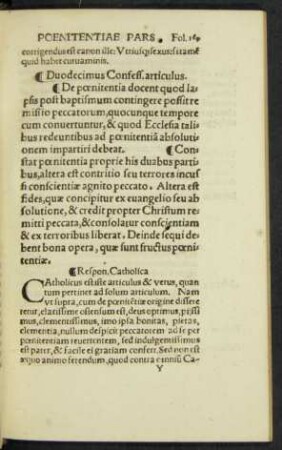 POENITENTIAE PARS. Fol.
corrigendus est canon ille: Vtriusq; sexus: si tamē
quid habet curuaminis.
¶ Duodecimus Confess. articulus.
¶ De pœnitentia docent quod la-
psis post baptismum contingere possit re
missio peccatorum, quocunque tempore
cum conuertuntur, & quod Ecclesia tali
bus redeuntibus ad pœnitentiā absoluti
onem impartiri debeat. ¶ Con-
stat pœnitentia proprie his duabus parti
bus, altera est contritio seu terrores incus
si conscientiæ agnito peccato. Altera est
fides, quæ concipitur ex euangelio seu ab
solutione, & credit propter Christum re
mitti peccata, & consolatur conscientiam
& ex terroribus liberat. Deinde sequi de
bent bona opera, quæ sunt fructus pœni-
tentiæ.
¶ Respon. Catholica
CAtholicus est iste articulus & verus, quan
tum pertinet ad solum articulum. Nam
vt supra, cum de pœnitētiæ origine dissere
retur, clarissime ostensum est, deus optimus, pijssi
mus, clementissimus, imo ipsa bonitas, pietas,
clementia, nullum despicit peccatorem ad se per
pœnitentiam reuertentem, sed indulgentissimus
est pater, & facile ei gratiam confert. Sed non est
æquo animo ferendum, quod contra omnis Ca-
Y